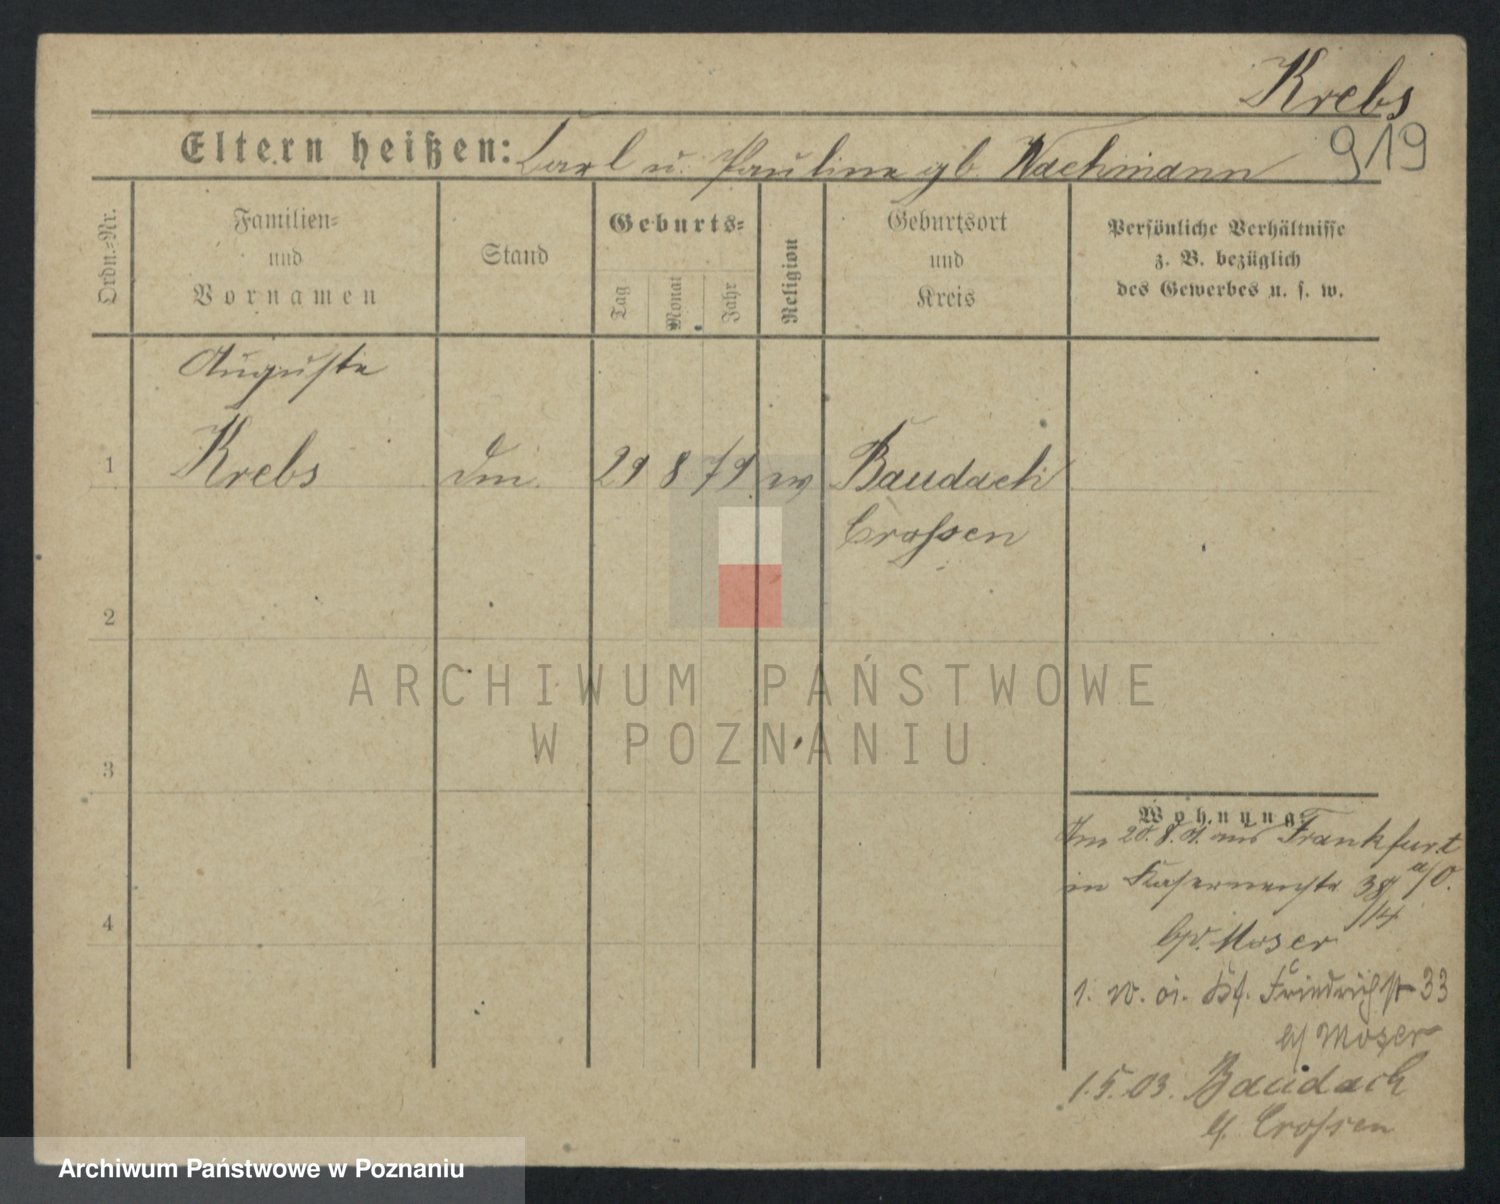 Krebs
919
Eltern heißen: Carl u. Pauline gb. Wachmann
Ordn.=Nr.
Familien=
und
Vornamen
Stand
Geburts=
Tag
Monat
Jahr
Religion
Geburtsort
und
Kreis
Persönliche Verhältnisse
z. B. bezüglich
des Gewerbes u. s. w.
Auguste
1 Krebs 29 8 79 Baudach
Crossen
2
3
4
ARCHIWUM PAŃSTWOWE
W POZNANIU
Wohnung
aus Frankfurt
a/O.
in 38
Moser
1. 10. 01. Friedrichstr 33
b/ Moser
1.5.03. Baudach
Crossen
Archiwum Państwowe w Poznaniu